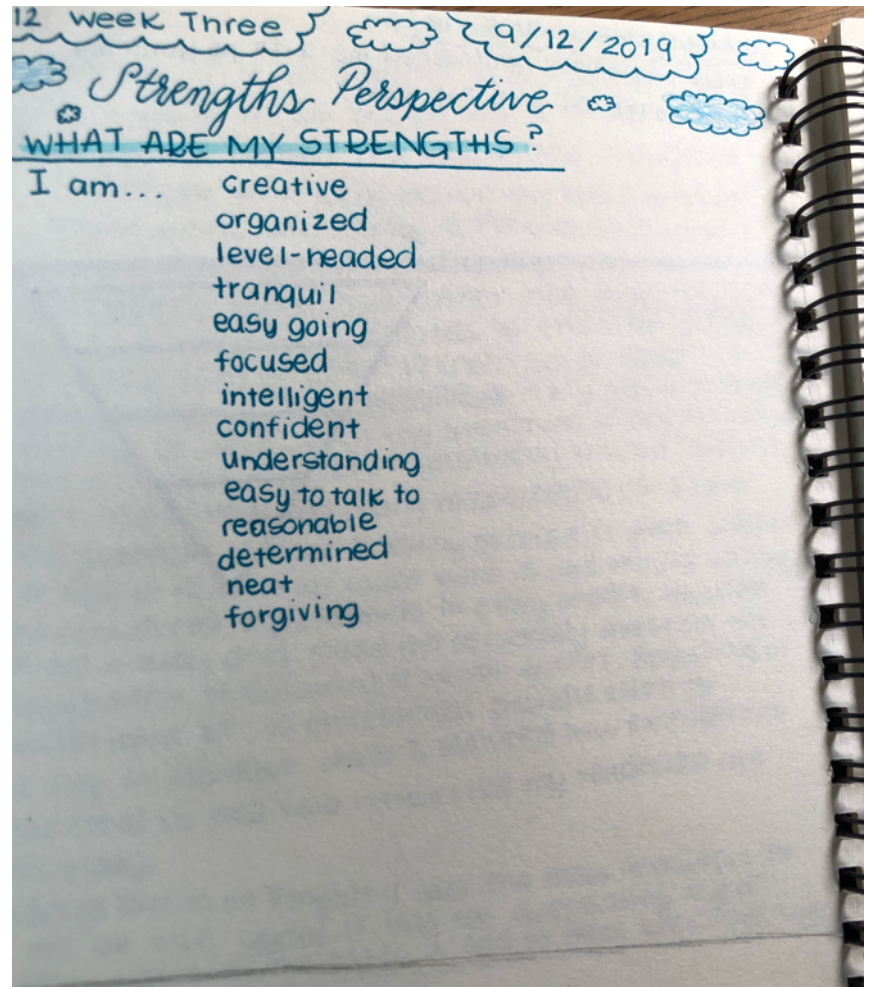 12 Week Three 9/12/2019
Strengths Perspective
WHAT ARE MY STRENGTHS?
I am... creative
organized
level-headed
tranquil
easy going
focused
intelligent
confident
understanding
easy to talk to
reasonable
determined
neat
forgiving